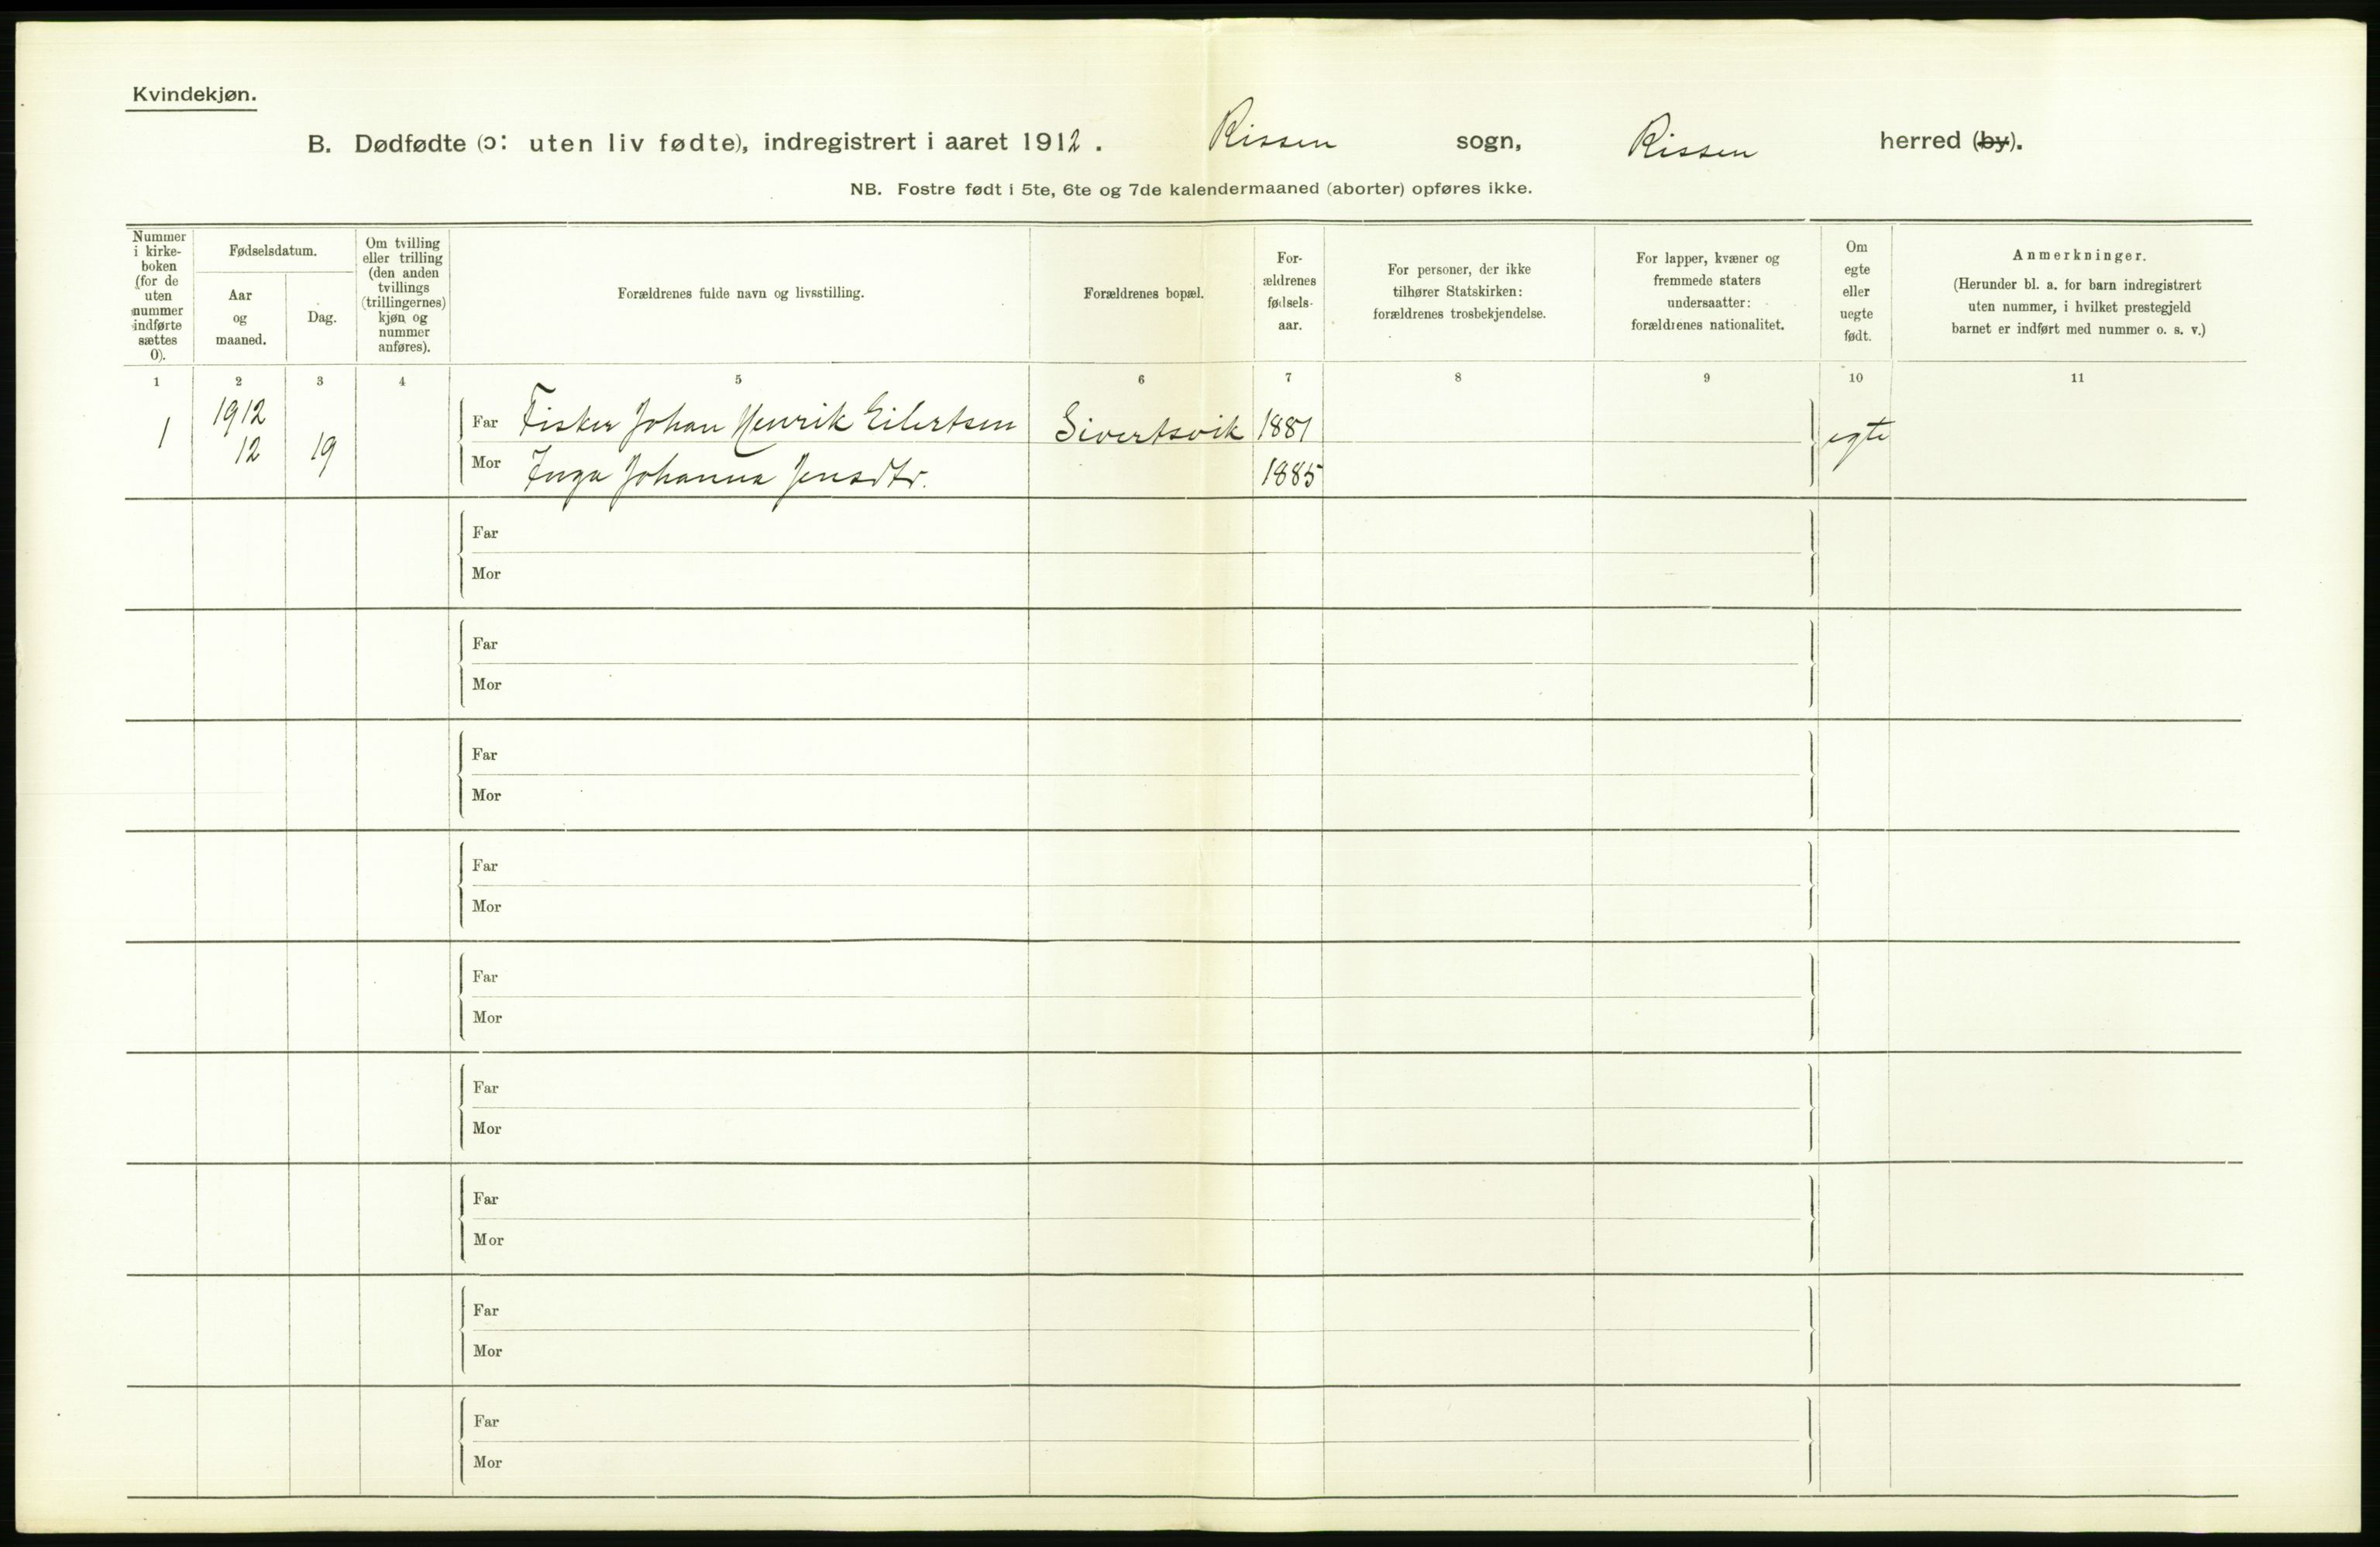 Kvindekjøn.
B. Dødfødte (ɔ: uten liv fødte), indregistrert i aaret 1912. Rissen sogn, Rissen herred (by).
NB. Fostre født i 5te, 6te og 7de kalendermaaned (aborter) opføres ikke.
Nummer i kirke-boken (for de uten nummer indførte sættes 0).
Fødselsdatum.
Aar og maaned.
Dag.
Om tvilling eller trilling (den anden tvillings (trillingernes) kjøn og nummer anføres).
Forældrenes fulde navn og livsstilling.
Forældrenes bopæl.
For-ældrenes fødsels-aar.
For personer, der ikke tilhører Statskirken: forældrenes trosbekjendelse.
For lapper, kvæner og fremmede staters undersaatter: forældrenes nationalitet.
Om egte eller uegte født.
Anmerkninger.
(Herunder bl. a. for barn indregistrert uten nummer, i hvilket prestegjeld barnet er indført med nummer o. s. v.)
1 2 3 4 5 6 7 8 9 10 11
1 1912 12 19
Far Fisker Johan Henrik Eilertsen Sivertsvik 1881 egte
Mor Inga Johanna Jensdtr. 1885
Far
Mor
Far
Mor
Far
Mor
Far
Mor
Far
Mor
Far
Mor
Far
Mor
Far
Mor
Far
Mor